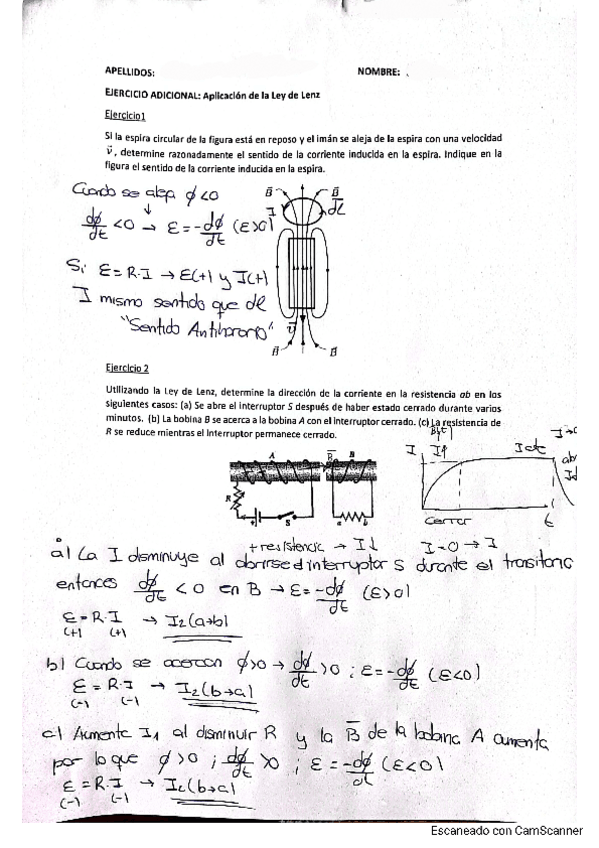 APELLIDOS:
NOMBRE:
EJERCICIO ADICIONAL: Aplicación de la Ley de Lenz
Ejercicio1
Si la espira circular de la figura está en reposo y el imán se aleja de la espira con una velocidad
v̄, determine razonadamente el sentido de la corriente inducida en la espira. Indique en la
figura el sentido de la corriente inducida en la espira.
Cuando se aleja ϕ<0
dϕ/dt <0 → ε=-dϕ/dt (ε>0)
Si ε=R·I → ε(+) y I(+)
I mismo sentido que dl
"Sentido Antihorario"
B̄ B̄
I dl
v̄
B̄ B̄
Ejercicio 2
Utilizando la Ley de Lenz, determine la dirección de la corriente en la resistencia ab en los
siguientes casos: (a) Se abre el interruptor S después de haber estado cerrado durante varios
minutos. (b) La bobina B se acerca a la bobina A con el interruptor cerrado. (c) La resistencia de
R se reduce mientras el interruptor permanece cerrado.
A B̄ B
R S a b
I I↑ I cte
Cerrar t
+ resistencia → I↓ I=0 → I
a) La I disminuye al abrirse el interruptor S durante el transitorio
entonces dϕ/dt < 0 en B → ε=-dϕ/dt (ε>0)
ε = R·I → I2(a→b)
(+) (+)
b) Cuando se acercan ϕ>0 → dϕ/dt >0 ; ε=-dϕ/dt (ε<0)
ε = R·I → I2(b→a)
(-) (-)
c) Aumenta I1 al disminuir R y la B̄ de la bobina A aumenta
por lo que ϕ>0 ; dϕ/dt >0 ; ε=-dϕ/dt (ε<0)
ε = R·I → I2(b→a)
(-) (-)
Escaneado con CamScanner